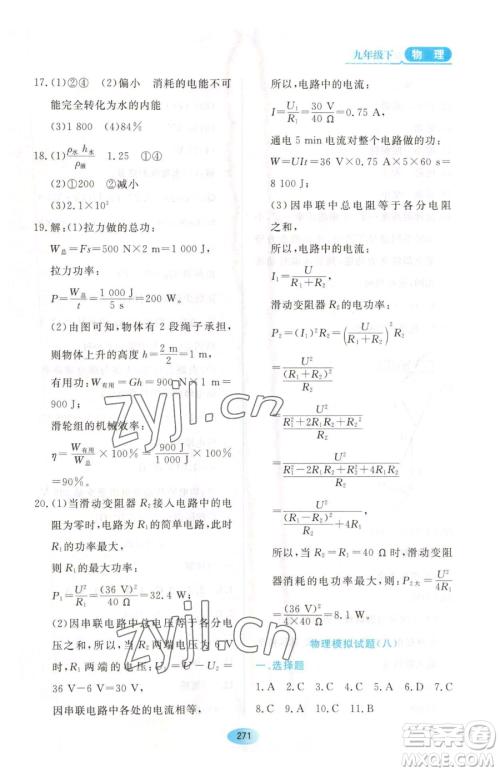 九年级下 物 理
17.(1)②④ (2)偏小 消耗的电能不可
能完全转化为水的内能
(3)1 800 (4)84%
18.(1)ρ水h水/ρ液 1.25 ①④
(2)①相平 ②减小
(3)2.1×10²
19.解:(1)拉力做的总功:
W总=Fs=500 N×2 m=1 000 J
拉力功率:
P=W总/t=1 000 J/5 s=200 W。
(2)由图可知,物体有 2 段绳子承担,
则物体上升的高度 h=2 m/2=1 m,
有用功:W有用=Gh=900 N×1 m=
900 J。
滑轮组的机械效率:
η=W有用/W总×100%=900 J/1 000 J×100%
=90%。
20.(1)当滑动变阻器 R₂ 接入电路中的电
阻为零时,电路为 R₁ 的简单电路,此
时 R₁ 的功率最大,
P₁=U²/R₁=(36 V)²/40 Ω=32.4 W;
(2)因串联电路中总电压等于各分电
压之和,所以,R₁ 两端的电压 U₁=
U-U₂=36 V-6 V=30 V,
因串联电路中各处的电流相等,
所以,电路中的电流:
I=U₁/R₁=30 V/40 Ω=0.75 A,
通电 5 min 电流对整个电路做的功:
W=UIt=36 V×0.75 A×5×60 s=
8 100 J;
(3)因串联中总电阻等于各分电阻
之和,
所以,电路中的电流:
I₁=U/(R₁+R₂),
滑动变阻器的电功率:
P₂=(I₁)²R₂=(U/(R₁+R₂))²R₂
=U²/((R₁+R₂)²/R₂)
=U²/((R₁²+R₂²+2R₁R₂)/R₂)
=U²/((R₁²+R₂²-2R₁R₂+4R₁R₂)/R₂)
=U²/((R₁-R₂)²/R₂+4R₁)
所以,当 R₂=R₁=40 Ω 时,滑动变阻
器消耗的电功率最大,P₂大=U²/4R₁
=(36 V)²/(4×40 Ω)=8.1 W。
物理模拟试题(八)
一、选择题
1.A 2.C 3.C 4.A 5.C 6.C 7.B
8.C 9.C 10.A 11.B 12.C
271
zyjl.cn
zyjl.cn